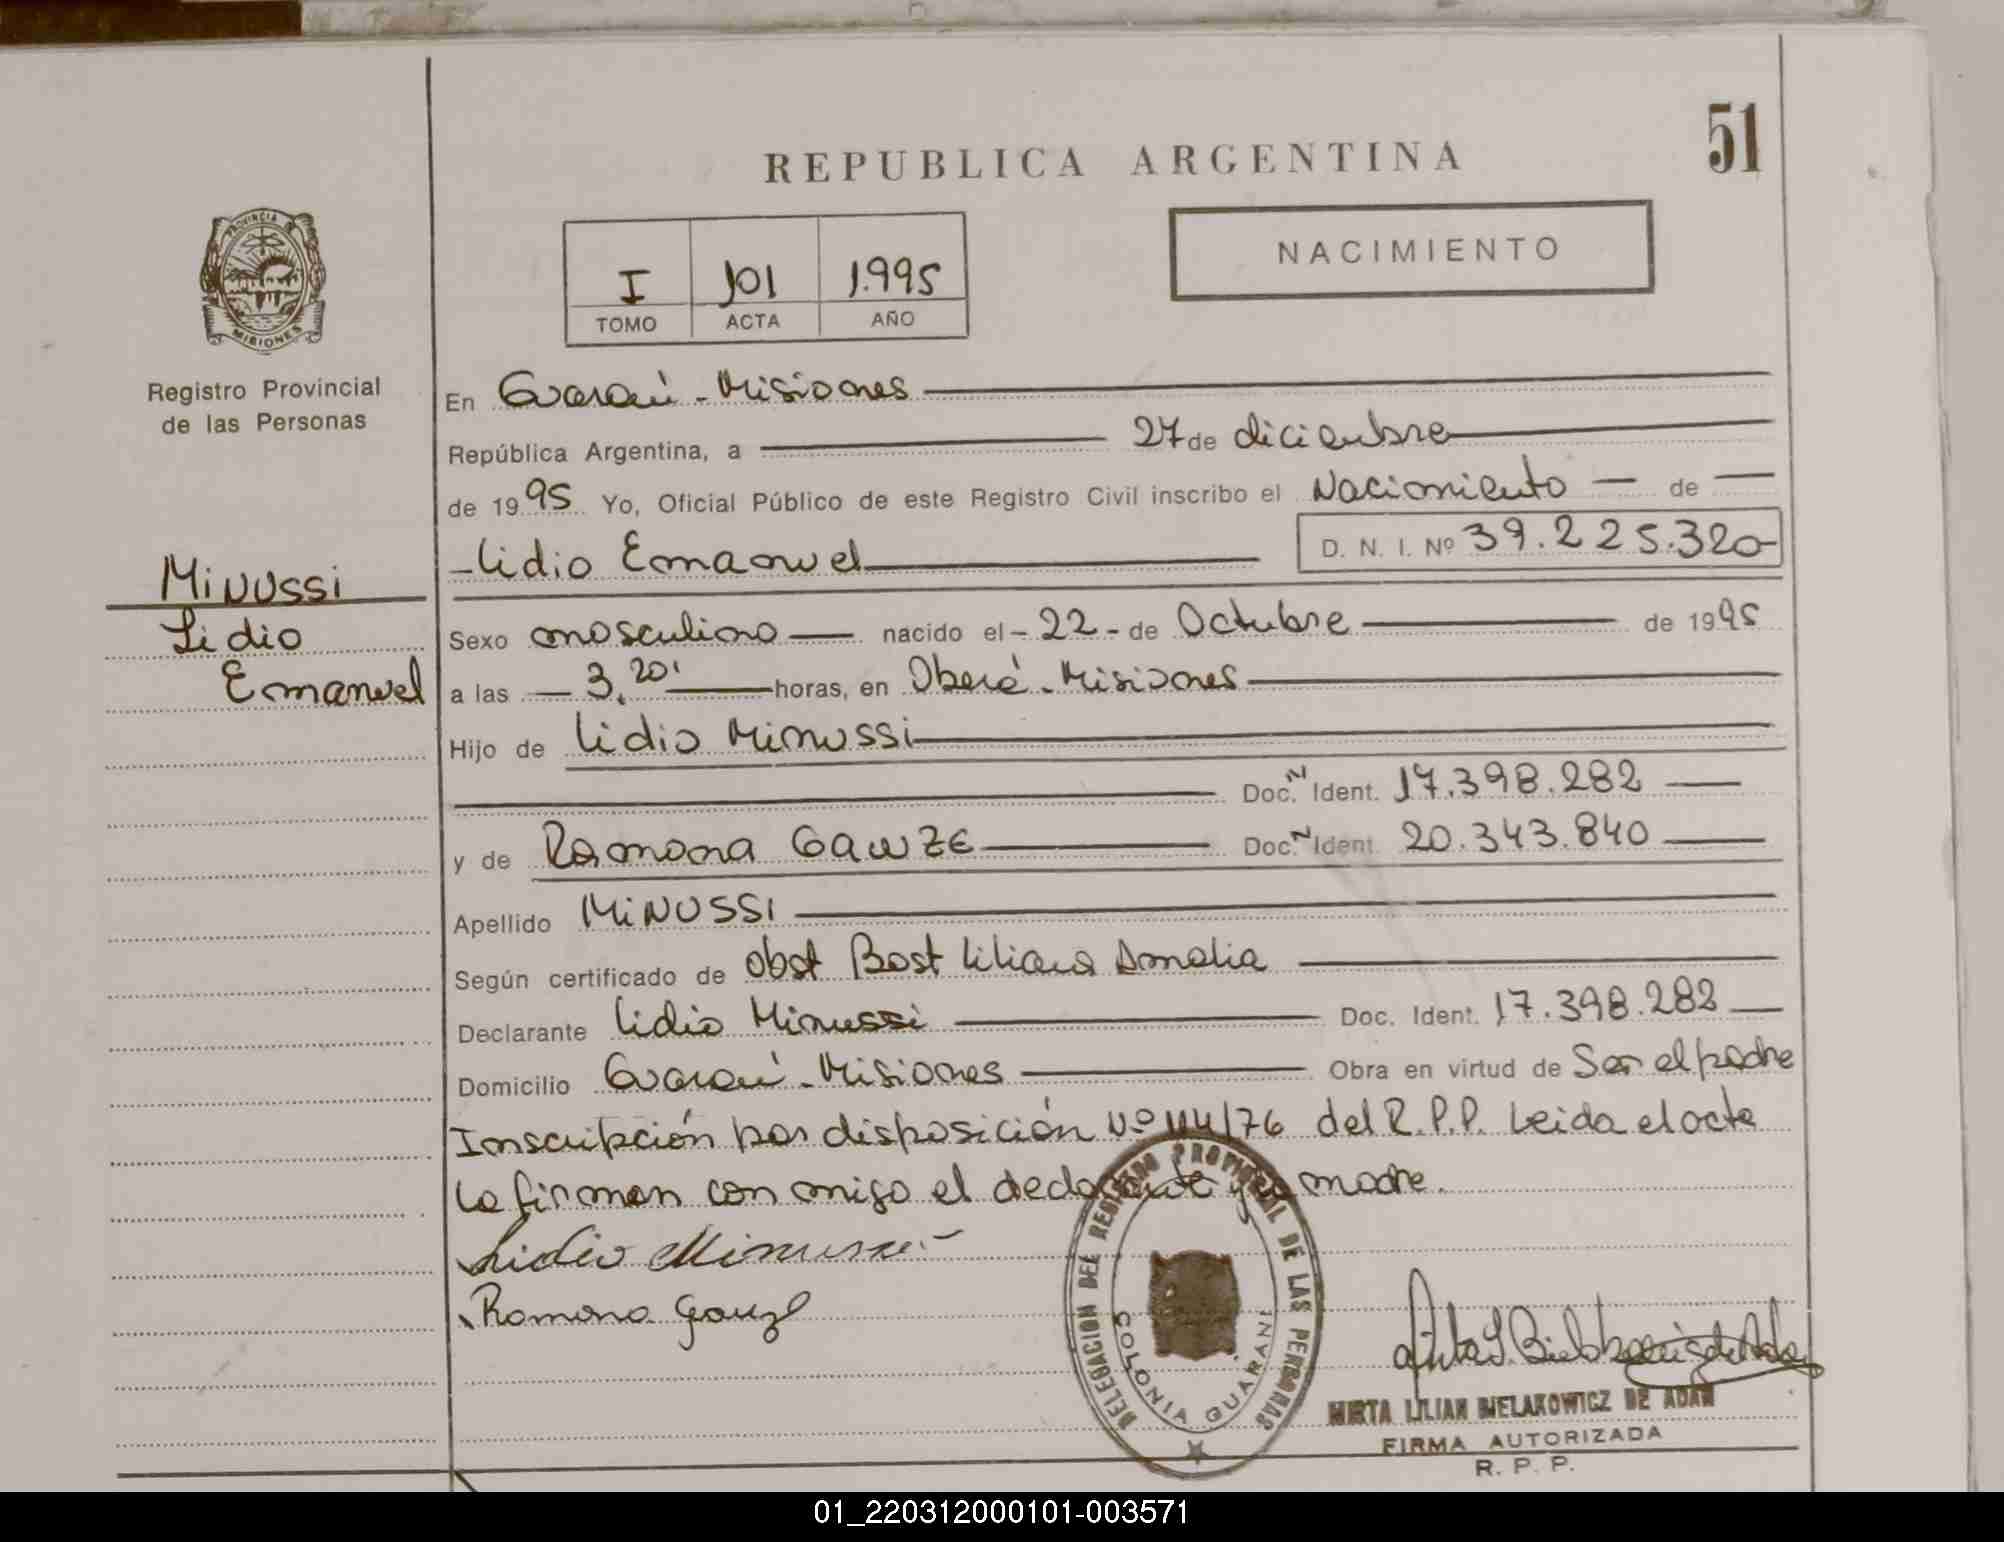 51
REPUBLICA ARGENTINA
PROVINCIA DE
MISIONES
Registro Provincial
de las Personas
I 101 1.995
TOMO ACTA AÑO
NACIMIENTO
En Guaraní - Misiones
República Argentina, a 27 de diciembre
de 1995 Yo, Oficial Público de este Registro Civil inscribo el Nacimiento de
Lidio Emanuel D. N. I. Nº 39.225.320
MINUSSI
Lidio
Emanuel
Sexo masculino nacido el - 22 - de Octubre de 1995
a las 3,20' horas, en Oberá - Misiones
Hijo de Lidio Minussi
Doc. N Ident. 17.398.282
y de Ramona GAUZE Doc. N Ident. 20.343.840
Apellido MINUSSI
Según certificado de Obst Bost Liliana Amalia
Declarante Lidio Minussi Doc. Ident. 17.398.282
Domicilio Guaraní - Misiones Obra en virtud de Ser el padre
Inscripción por disposición Nº 114/76 del R.P.P. Leida el acta
la firman con migo el declarante y la madre.
Lidio Minussi
Ramona Gauze
DELEGACION DEL REGISTRO PROVINCIAL DE LAS PERSONAS
COLONIA GUARANI
MIRTA LILIAN BIELAKOWICZ DE ADAM
FIRMA AUTORIZADA
R. P. P.
01_220312000101-003571